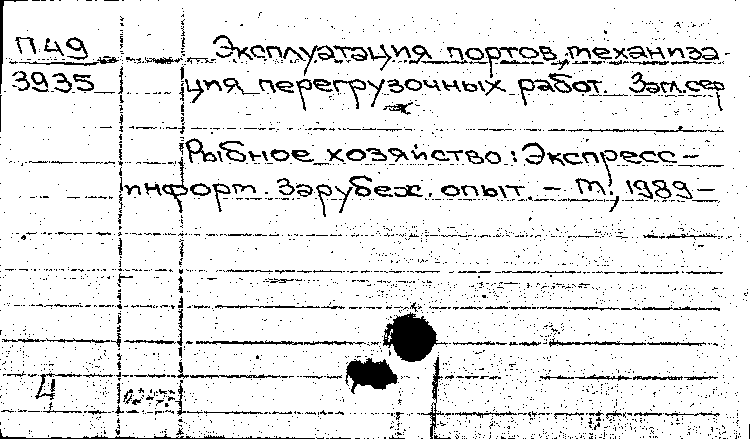 П49 Эксплуатация портов, механиза-
3935 ция перегрузочных работ. Загл. сер
Рыбное хозяйство: Экспресс-
информ. Зарубеж. опыт. – М., 1989 –
4